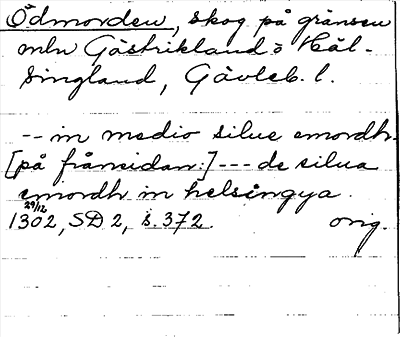 Ödmorden, skog på gränsen
mln Gästrikland o Häl-
singland, Gävleb. l.
-- in medio silue emordh.
[på frånsidan:] --- de silua
emordh in helsingya.
29/12
1302, SD 2, s. 372. orig.